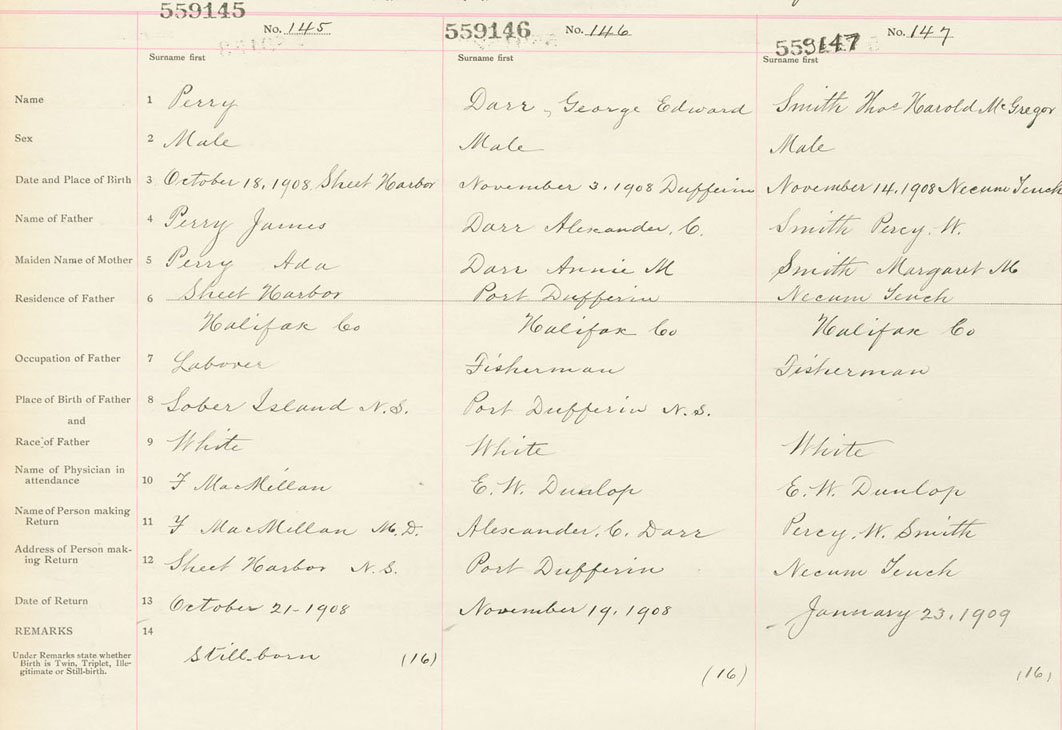 559145
No. 145
559146
No. 146
559147
No. 147
Surname first
Surname first
Surname first
Name
1 Perry
Darr, George Edward
Smith Thos Harold McGregor
Sex
2 Male
Male
Male
Date and Place of Birth
3 October 18, 1908 Sheet Harbor
November 3, 1908 Dufferin
November 14, 1908 Necum Teuch
Name of Father
4 Perry James
Darr Alexander. C.
Smith Percy. W.
Maiden Name of Mother
5 Perry Ada
Darr Annie M
Smith Margaret M
Residence of Father
6 Sheet Harbor
Port Dufferin
Necum Teuch
Halifax Co
Halifax Co
Halifax Co
Occupation of Father
7 Laborer
Fisherman
Fisherman
Place of Birth of Father
8 Sober Island N.S.
Port Dufferin N.S.
and
Race of Father
9 White
White
White
Name of Physician in
attendance
10 F MacMillan
E. W. Dunlop
E. W. Dunlop
Name of Person making
Return
11 F MacMillan M.D.
Alexander. C. Darr
Percy. W. Smith
Address of Person mak-
ing Return
12 Sheet Harbor N.S.
Port Dufferin
Necum Teuch
Date of Return
13 October 21-1908
November 19, 1908
January 23, 1909
REMARKS
14
Under Remarks state whether
Birth is Twin, Triplet, Ille-
gitimate or Still-birth.
Still-born (16)
(16)
(16)